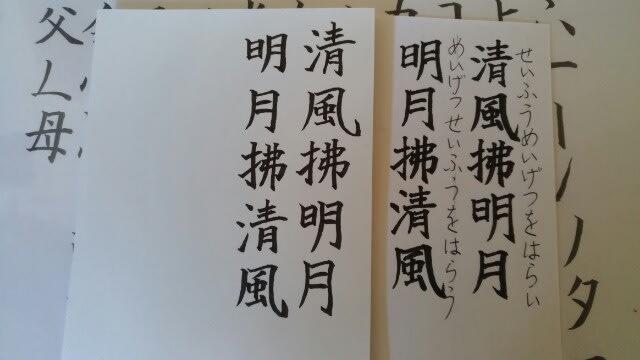 せいふうめいげつをはらい
清風拂明月
めいげつせいふうをはらう
明月拂清風
清風拂明月
明月拂清風
父人母